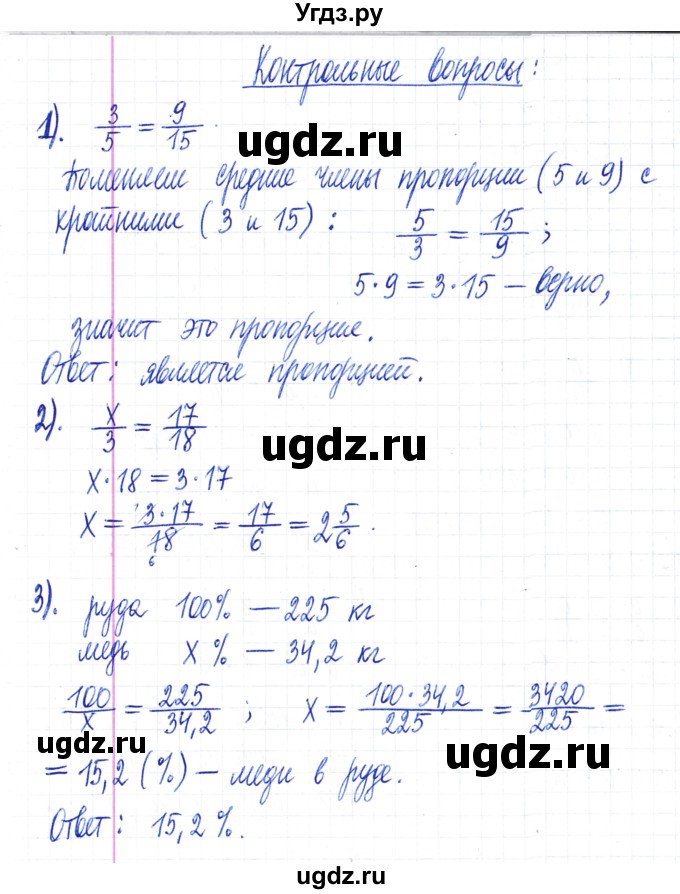 Угдз.ру
Контрольные вопросы:
1). 3/5 = 9/15.
ugdz.ru
Поменяем средние члены пропорции (5 и 9) с
крайними (3 и 15): 5/3 = 15/9;
5·9 = 3·15 – верно,
значит это пропорция.
Ответ: является пропорцией.
2). x/3 = 17/18
ugdz.ru
x·18 = 3·17
x = 3·17/18 = 17/6 = 2 5/6.
6
ugdz.ru
3). руда 100% – 225 кг
медь x % – 34,2 кг
100/x = 225/34,2; x = 100·34,2/225 = 3420/225 =
ugdz.ru ugdz.ru
= 15,2 (%) – меди в руде.
Ответ: 15,2%.
ugdz.ru
ugdz.ru